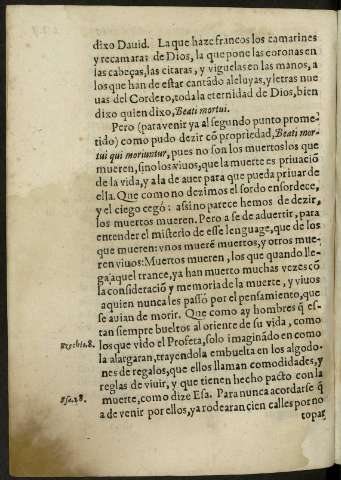 dixo Dauid. La que haze francos los camarines
y recamaras de Dios, la que pone las coronas en
las cabeças, las citaras, y viguelas en las manos, a
los que han de estar cantãdo aleluyas, y letras nue
uas del Cordero, toda la eternidad de Dios, bien
dixo quien dixo, Beati mortui.
Pero (para venir ya al segundo punto prome
tido) como pudo dezir cõ propriedad, Beati mor-
tui qui moriuntur, pues no son los muertos los que
mueren, sino los viuos, que la muerte es priuaciõ
de la vida, y a la de auer para que pueda priuar de
ella. Que como no dezimos el sordo ensordece,
y el ciego cegò: assi no parece hemos de dezir,
los muertos mueren. Pero a se de aduertir, para
entender el misterio de esse lenguage, que de los
que mueren: vnos muerẽ muertos, y otros mue-
ren viuos: Muertos mueren, los que quando lle-
ga aquel trance, ya han muerto muchas vezes cõ
la consideraciõ y memoria de la muerte, y viuos
aquien nunca les passò por el pensamiento, que
se auian de morir. Que como ay hombres q̃ es-
tan siempre bueltos al oriente de su vida, como
Ezechie. 8. los que vido el Profeta, solo imaginãdo en como
la alargaran, trayendola embuelta en los algodo-
nes de regalos, que ellos llaman comodidades, y
reglas de viuir, y que tienen hecho pacto con la
Esa. 28. muerte, como dize Esa. Para nunca acordarse q̃
a de venir por ellos, ya rodearan cien calles por no
topar